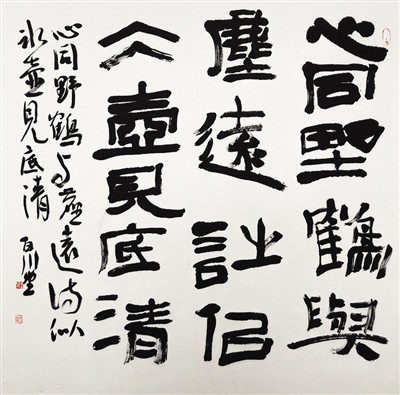 心同野鶴與
塵遠詩佀
仌壺見底清
心同野鶴与塵遠詩似
冰壺見底清